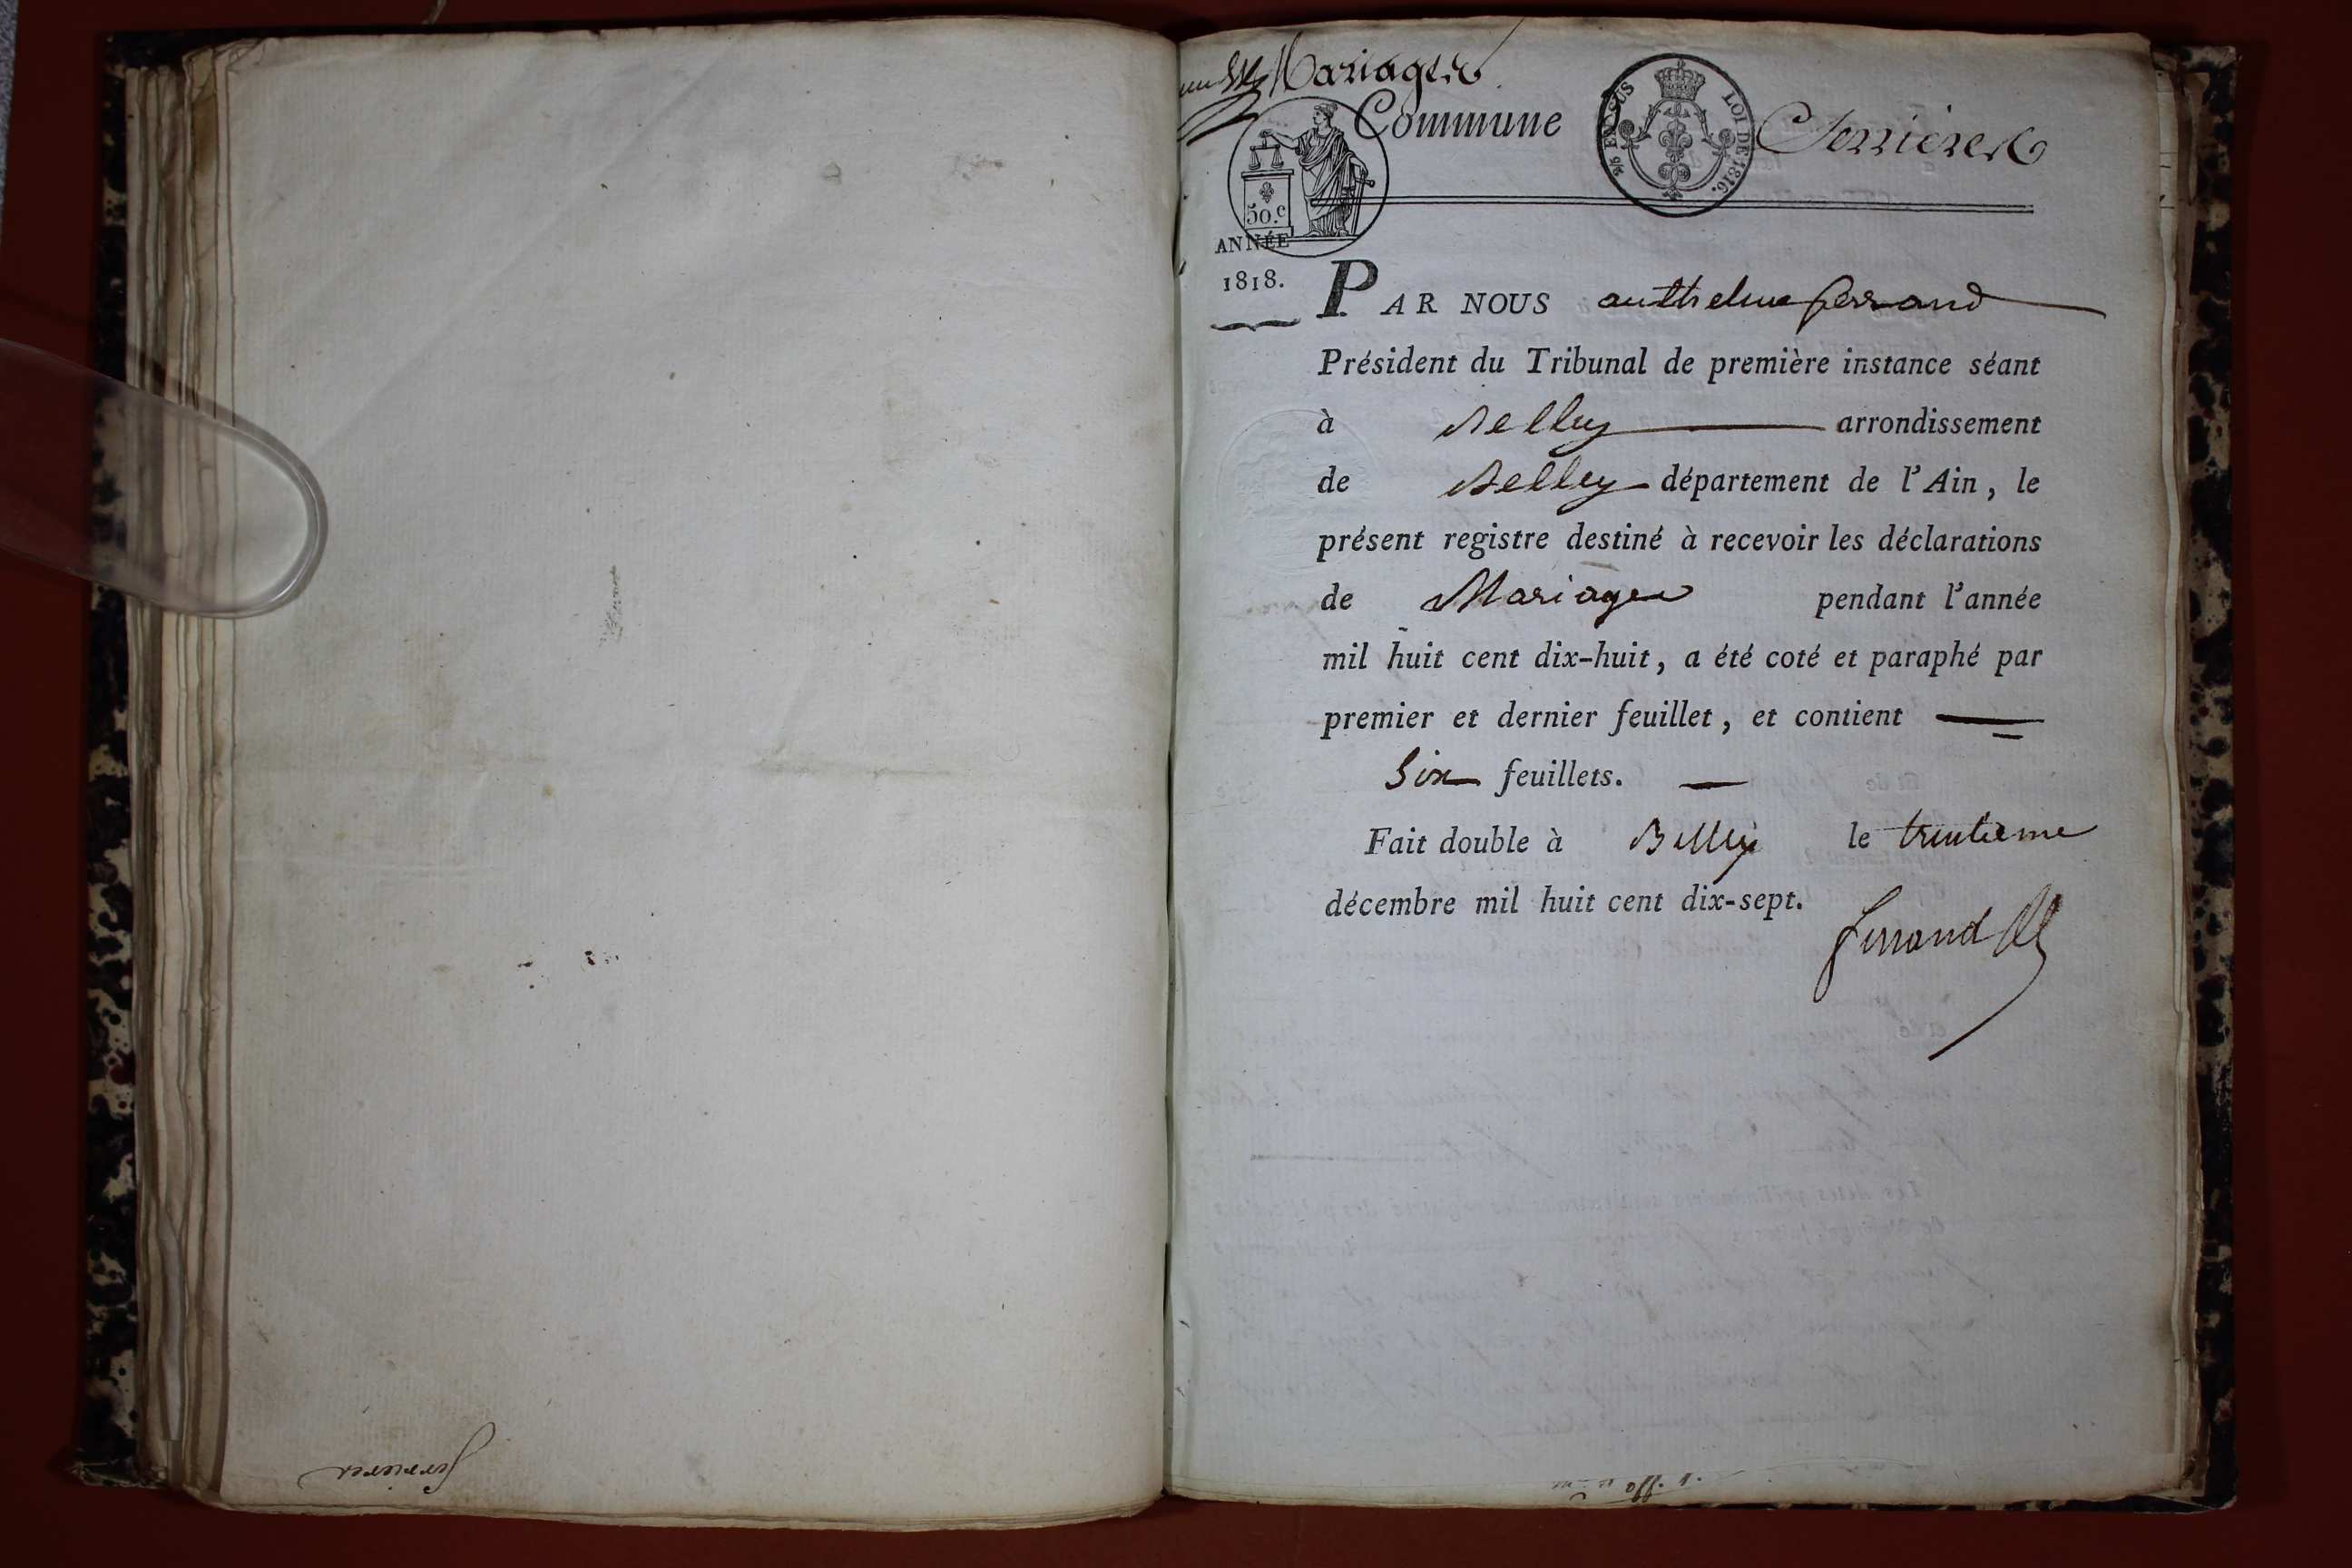 Mariages
Commune Serrieres
2/5 EN SUS
LOI DE 1816.
50.c
ANNÉE
1818.
PAR NOUS anthelme ferrand
Président du Tribunal de première instance séant
à Belley arrondissement
de Belley département de l'Ain, le
présent registre destiné à recevoir les déclarations
de Mariage pendant l'année
mil huit cent dix-huit, a été coté et paraphé par
premier et dernier feuillet, et contient
Six feuillets.
Fait double à Belley le trentieme
décembre mil huit cent dix-sept.
ferrand
Serrieres